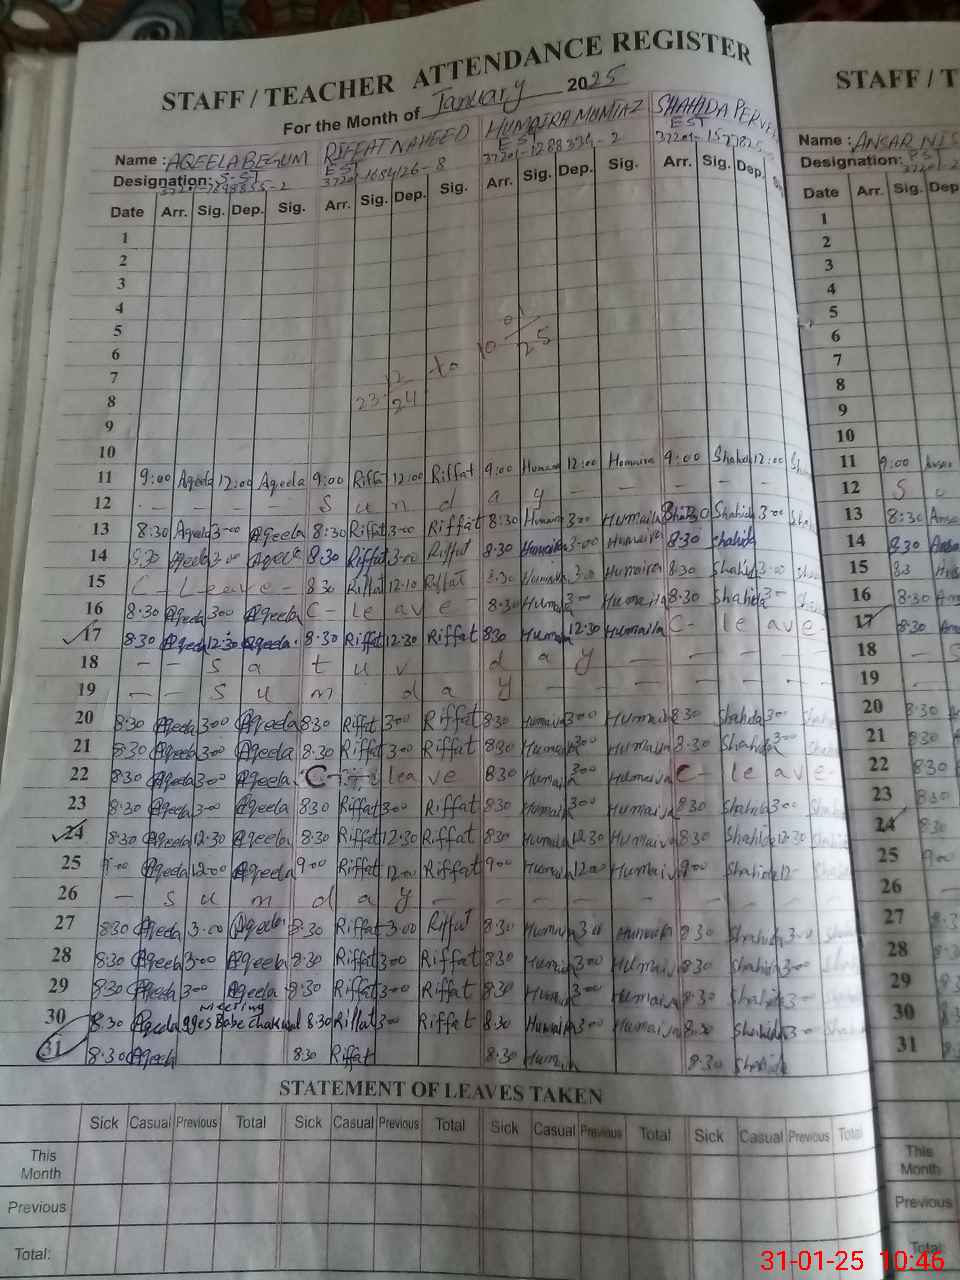 STAFF / TEACHER ATTENDANCE REGISTER
For the Month of January 2025
Name : AQEELA BEGUM RIFFAT NAHEED HUMAIRA MUMTAZ SHAHIDA PERVE
Designation: S-ST EST EST EST
37201-1654126-8 37201-1288334-2
Date Arr. Sig. Dep. Sig. Arr. Sig. Dep. Sig. Arr. Sig. Dep. Sig. Arr. Sig. Dep.
1
2
3
4
5
6
7
8 23 12/24 to 10 01/25
9
10
11 9:00 Aqeela 12:00 Aqeela 9:00 Riffa 12:00 Riffat 9:00 Humaira 12:00 Humaira 9:00 Shahida 12:00
12 S u n d a y
13 8:30 Aqeela 3:00 Aqeela 8:30 Riffat 3:00 Riffat 8:30 Humaira 3:00 Humaira Shahida 3:00
14 8:30 Aqeela 3:00 Aqeela 8:30 Riffat 3:00 Riffat 8:30 Humaira 3:00 Humaira 8:30 Shahida
15 C - Leave - 8:30 Riffat 12:10 Riffat 8:30 Humaira 3:00 Humaira 8:30 Shahida 3:00
16 8:30 Aqeela 3:00 Aqeela C - le ave - 8:30 Humaira 3:00 Humaira 8:30 Shahida 3:00
17 8:30 Aqeela 12:30 Aqeela 8:30 Riffat 12:30 Riffat 8:30 Humaira 12:30 Humaira C - le ave -
18 - - S a t u r d a y - - - - -
19 - - S u n d a y - - - - - -
20 8:30 Aqeela 3:00 Aqeela 8:30 Riffat 3:00 Riffat 8:30 Humaira 3:00 Humaira 8:30 Shahida 3:00
21 8:30 Aqeela 3:00 Aqeela 8:30 Riffat 3:00 Riffat 8:30 Humaira 3:00 Humaira 8:30 Shahida 3:00
22 8:30 Aqeela 3:00 Aqeela C - leave 8:30 Humaira 3:00 Humaira C - le ave -
23 8:30 Aqeela 3:00 Aqeela 8:30 Riffat 3:00 Riffat 8:30 Humaira 3:00 Humaira 8:30 Shahida 3:00
24 8:30 Aqeela 12:30 Aqeela 8:30 Riffat 12:30 Riffat 8:30 Humaira 12:30 Humaira 8:30 Shahida 12:30
25 9:00 Aqeela 12:00 Aqeela 9:00 Riffat 12:00 Riffat 9:00 Humaira 12:00 Humaira 9:00 Shahida 12
26 - S u n d a y - - - - - -
27 8:30 Aqeela 3:00 Aqeela 8:30 Riffat 3:00 Riffat 8:30 Humaira 3:00 Humaira 8:30 Shahida 3:00
28 8:30 Aqeela 3:00 Aqeela 8:30 Riffat 3:00 Riffat 8:30 Humaira 3:00 Humaira 8:30 Shahida 3:00
29 8:30 Aqeela 3:00 Aqeela 8:30 Riffat 3:00 Riffat 8:30 Humaira 3:00 Humaira 8:30 Shahida 3:00
meeting
30 8:30 Aqeela chakwal 8:30 Riffat 3:00 Riffat 8:30 Humaira 3:00 Humaira 8:30 Shahida 3:00
31 8:30 Aqeela 8:30 Riffat 8:30 Humaira 8:30 Shahida
STATEMENT OF LEAVES TAKEN
Sick Casual Previous Total Sick Casual Previous Total Sick Casual Previous Total Sick Casual Previous Total
This Month
Previous
Total:
STAFF / T
Name : ANSAR NIS
Designation:
Date Arr. Sig. Dep
1
2
3
4
5
6
7
8
9
10
11 9:00
12 S u
13 8:30
14 8:30
15
16 8:30
17 8:30
18 - S
19
20 8:30
21 8:30
22 8:30
23 8:30
24 8:30
25 9:00
26
27
28
29
30
31
This Month
Previous
Total
31-01-25 10:46